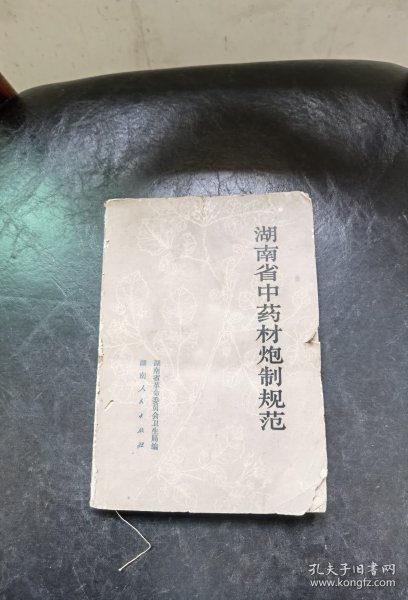 湖南省中药材炮制规范
湖南省革命委员会卫生局编
湖南人民出版社
孔夫子旧书网
www.kongfz.com